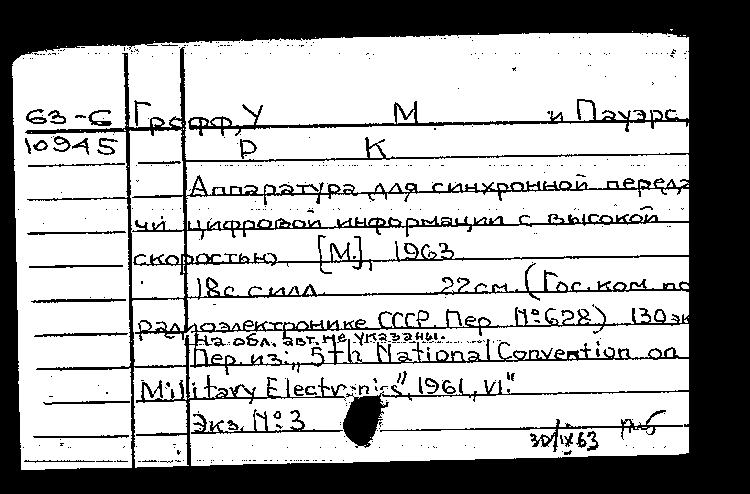 63-6 Грофф, У М и Пауэрс,
10945 Р К
Аппаратура для синхронной переда
чи цифровой информации с высокой
скоростью [М.], 1963
18с с илл 22см. (Гос. ком. по
радиоэлектронике СССР. Пер №628) 130 эк
На обл. авт. не указаны.
Пер. из: „5th National Convention on
Military Electronics", 1961, VI."
Экз. №3
30/IX 63